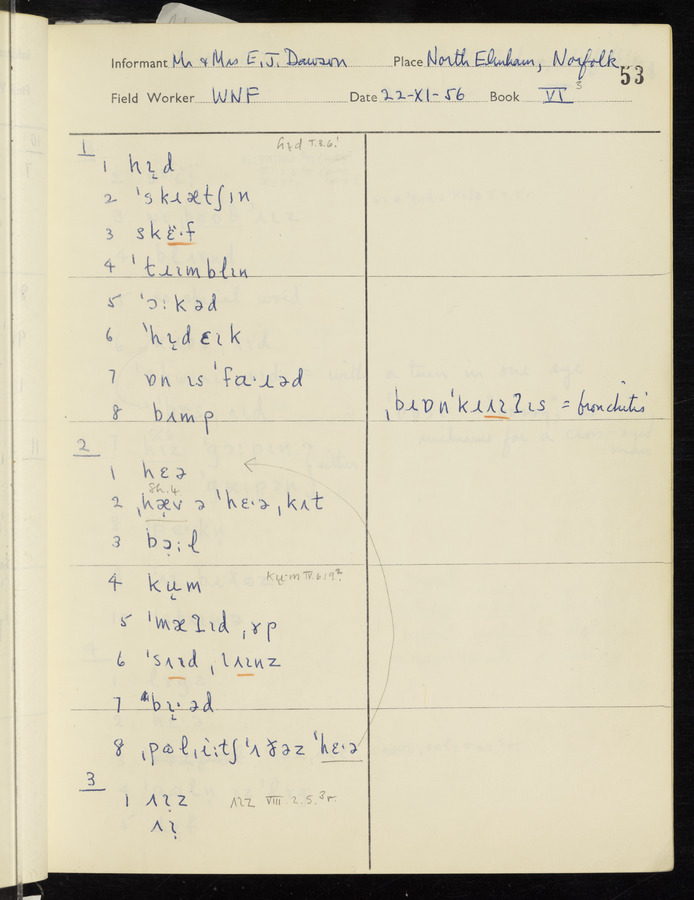 Informant Mr & Mrs E. J. Dawson Place North Elmham, Norfolk
53
Field Worker WNF Date 22-XI-56 Book VI
1
1 hɪ̜d
2 ˈskɹætʃɪn
3 skɛ̈·f
4 ˈtɹɪmblɪn
5 ˈɔːkəd
6 ˈhɪ̜dɛɪk
7 ɒn ɪs ˈfɑ·ɹəd
8 bɹmp
ˌbɹɒnˈkʌɪʔɪs = bronchitis
2
1 hɛə
Sh.4
2 ˌhæv ə ˈhɛ·ə ˌkʌt
3 bɔ̣ːl
4 kʉm
5 ˈmæʔɪd ˌɤp
6 ˈsʌɪd ˌlʌɪnz
7 ˈbɪ̜·əd
8 ˌpɒlˌiːtʃ ˈʌðəz ˈhɛ·ə
3
1 ʌɪ̜z ʌɪz VIII.2.5.
ʌɪ̜